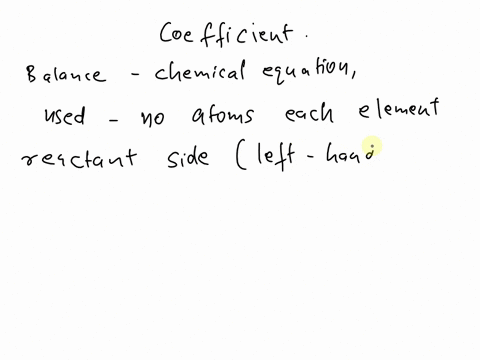 Coefficient.
Balance - chemical equation,
used - no atoms each element
reactant side (left - hand